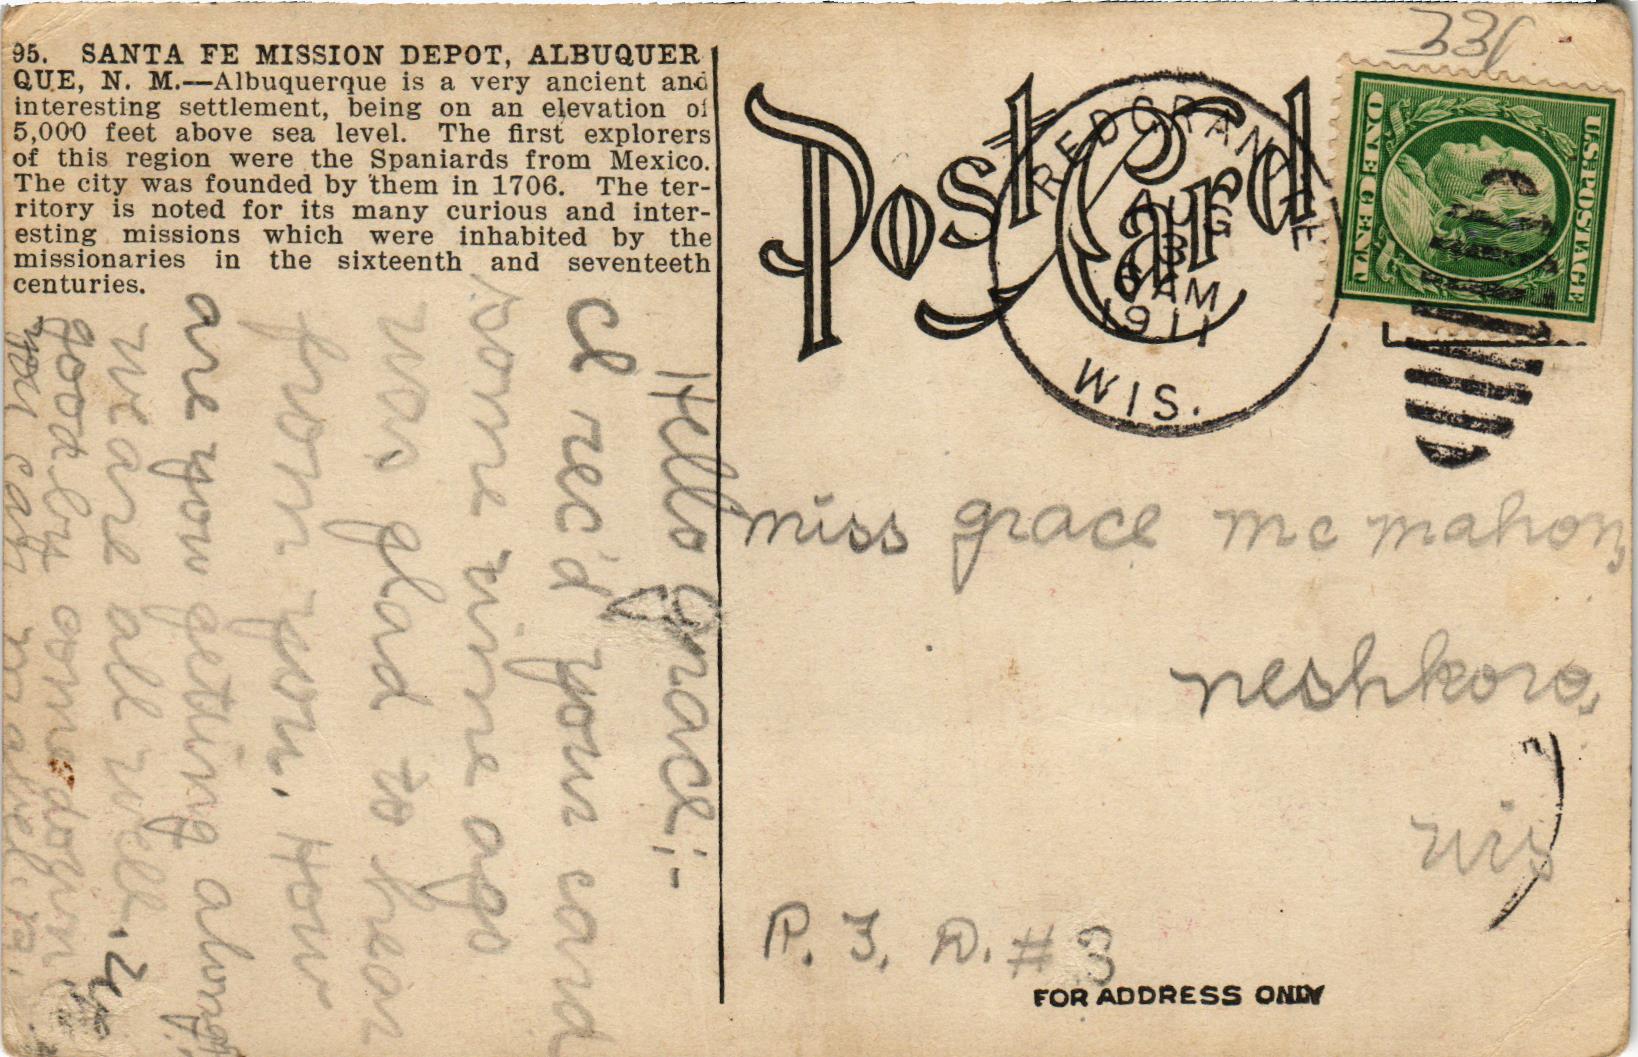 95. SANTA FE MISSION DEPOT, ALBUQUER
QUE, N. M.—Albuquerque is a very ancient and
interesting settlement, being on an elevation of
5,000 feet above sea level. The first explorers
of this region were the Spaniards from Mexico.
The city was founded by them in 1706. The ter-
ritory is noted for its many curious and inter-
esting missions which were inhabited by the
missionaries in the sixteenth and seventeeth
centuries.
Post Card
REDGRANITE
AUG
3
6 AM
1911
WIS.
U.S. POSTAGE
ONE CENT
331
Hello Grace:-
I rec'd your card
some time ago
was glad to hear
from you. How
are you getting along?
we are all well.
goodby come down
you can mabel. R.
miss grace mc mahon,
neshkoro,
wis
R. F. D. # 3
FOR ADDRESS ONLY